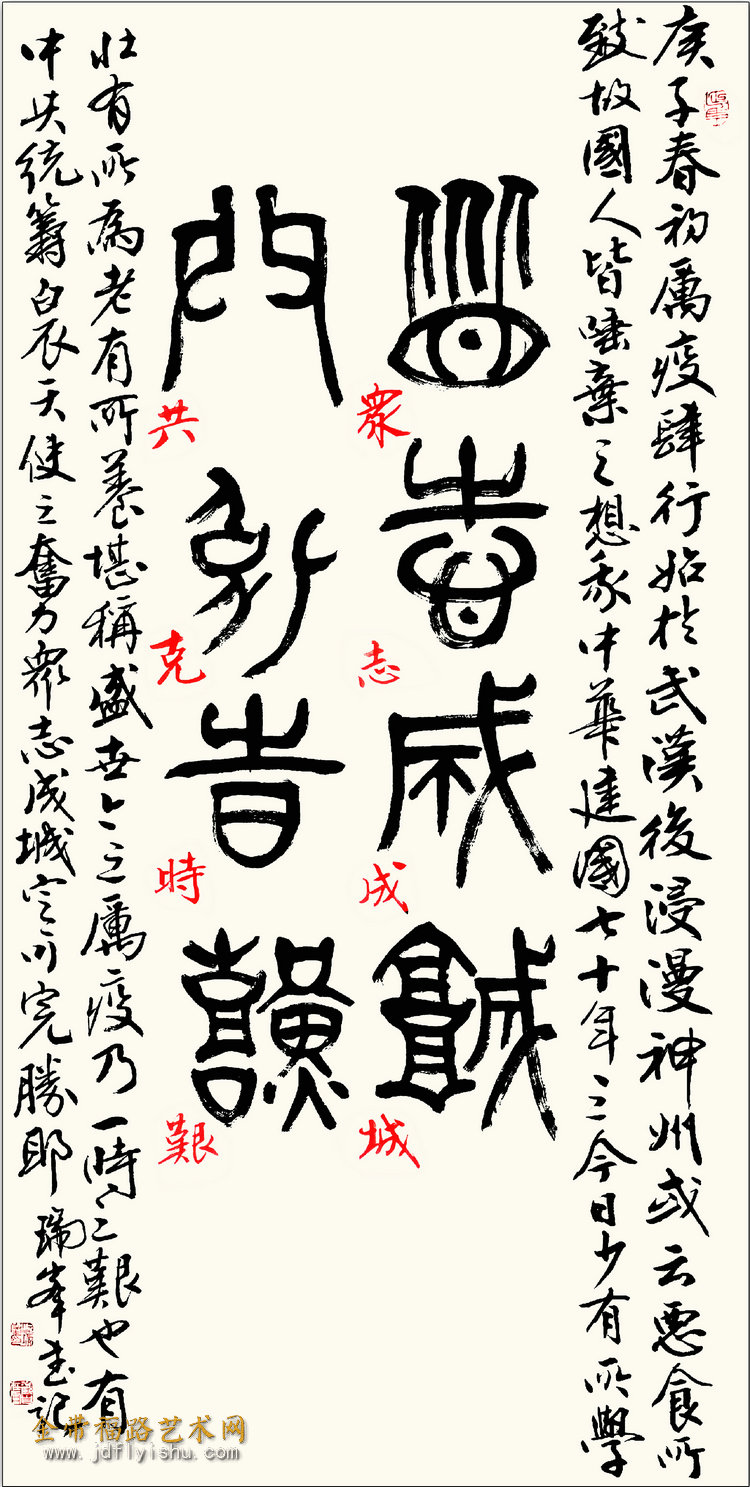 庚子春初厲疫肆行始於武漢後浸漫神州或云惡食所
致故國人皆唾棄之想我中華建國七十年之今日少有所學
眾志成城
眾志成城
共克時艱
共克時艱
壯有所為老有所養堪稱盛世今之厲疫乃一時之艱也有
中共統籌白衣天使之奮力眾志成城定可完勝耶 瑞峯書記
金带福路艺术网
www.jdflyishu.com